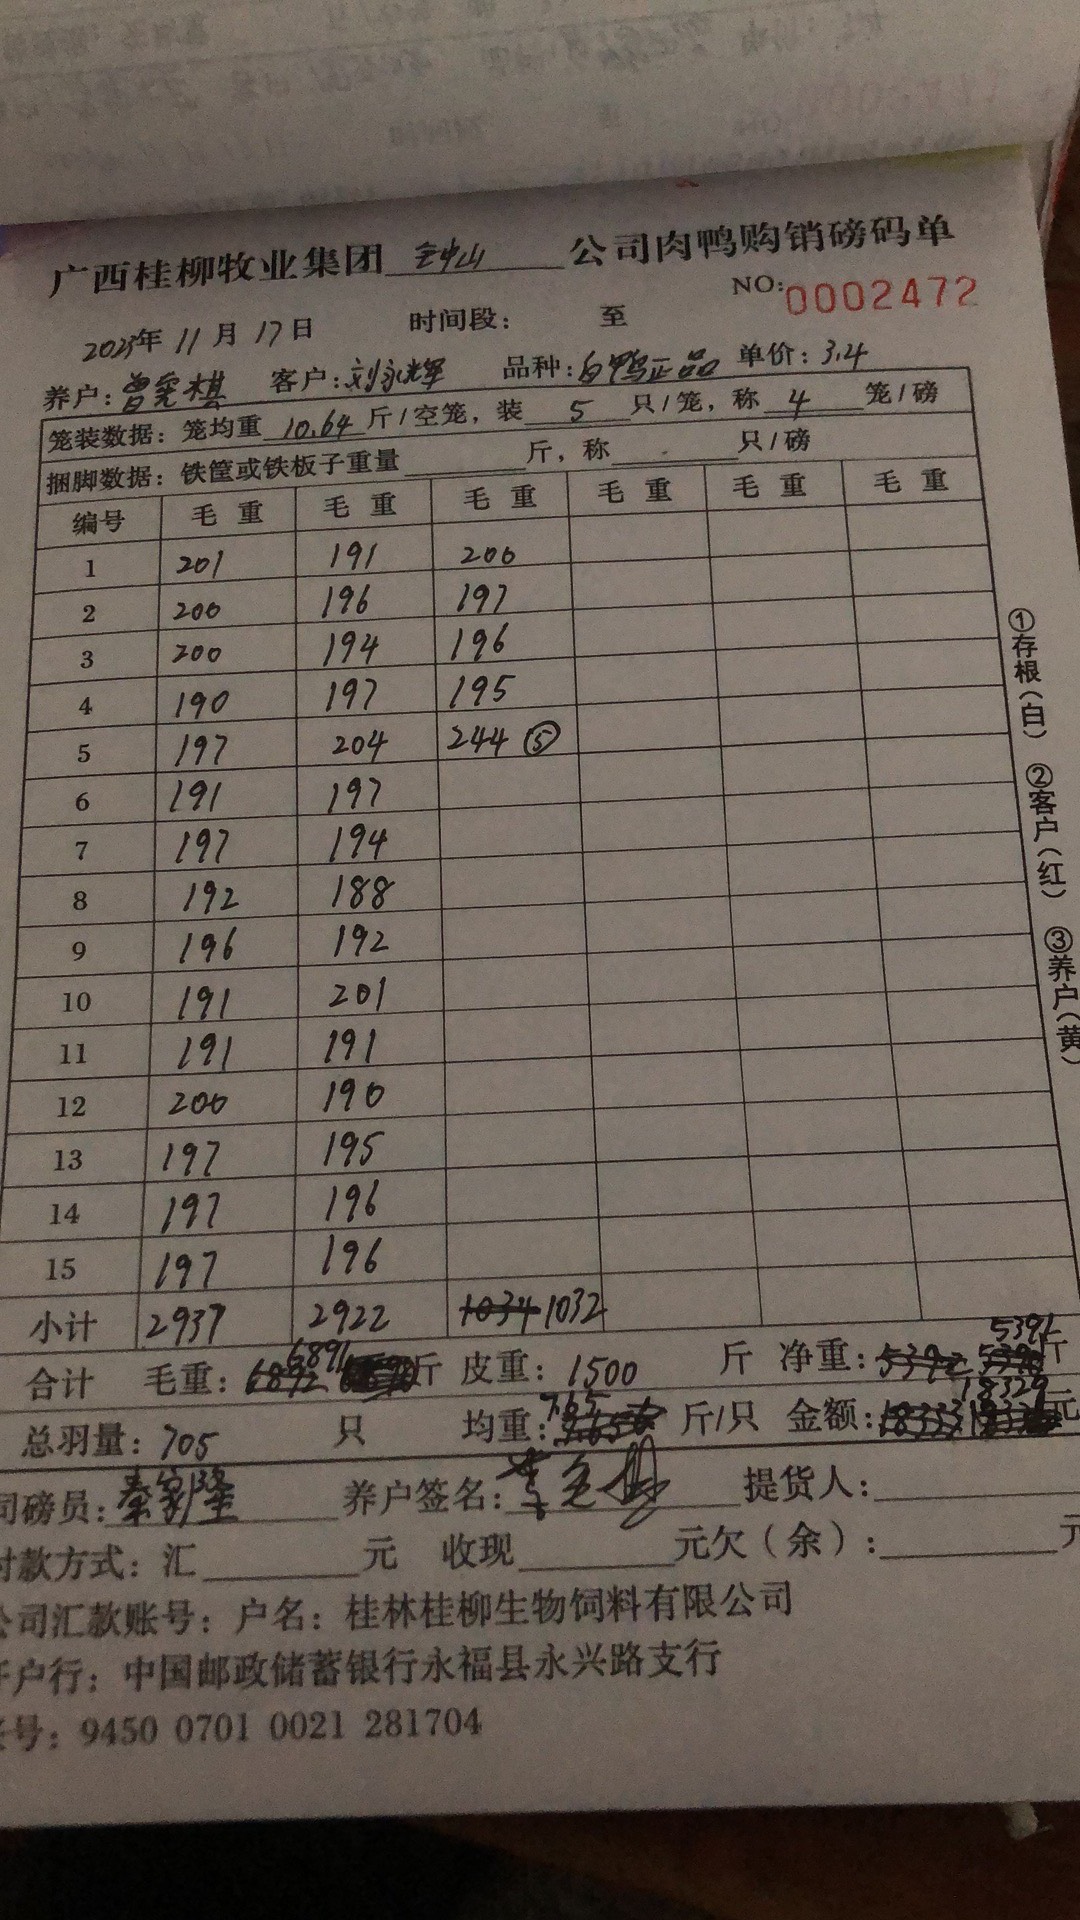 广西桂柳牧业集团 钟山 公司肉鸭购销磅码单
NO: 0002472
2023年 11 月 17 日 时间段: 至
养户: 曾宪棋 客户: 刘永辉 品种: 白鸭正品 单价: 3.4
笼装数据: 笼均重 10.64 斤/空笼, 装 5 只/笼, 称 4 笼/磅
捆脚数据: 铁筐或铁板子重量 斤, 称 只/磅
编号 毛重 毛重 毛重 毛重 毛重 毛重
1 201 191 200
2 200 196 197
3 200 194 196
4 190 197 195
5 197 204 244 ⑤
6 191 197
7 197 194
8 192 188
9 196 192
10 191 201
11 191 191
12 200 190
13 197 195
14 197 196
15 197 196
小计 2937 2922 1034 1032
合计 毛重: 6892 6891 斤 皮重: 1500 斤 净重: 5392 5391 斤
总羽量: 705 只 均重: 7.65 斤/只 金额: 18333 18329 元
司磅员: 秦家隆 养户签名: 提货人:
付款方式: 汇 元 收现 元欠(余): 元
公司汇款账号: 户名: 桂林桂柳生物饲料有限公司
开户行: 中国邮政储蓄银行永福县永兴路支行
账号: 9450 0701 0021 281704
①存根(白) ②客户(红) ③养户(黄)